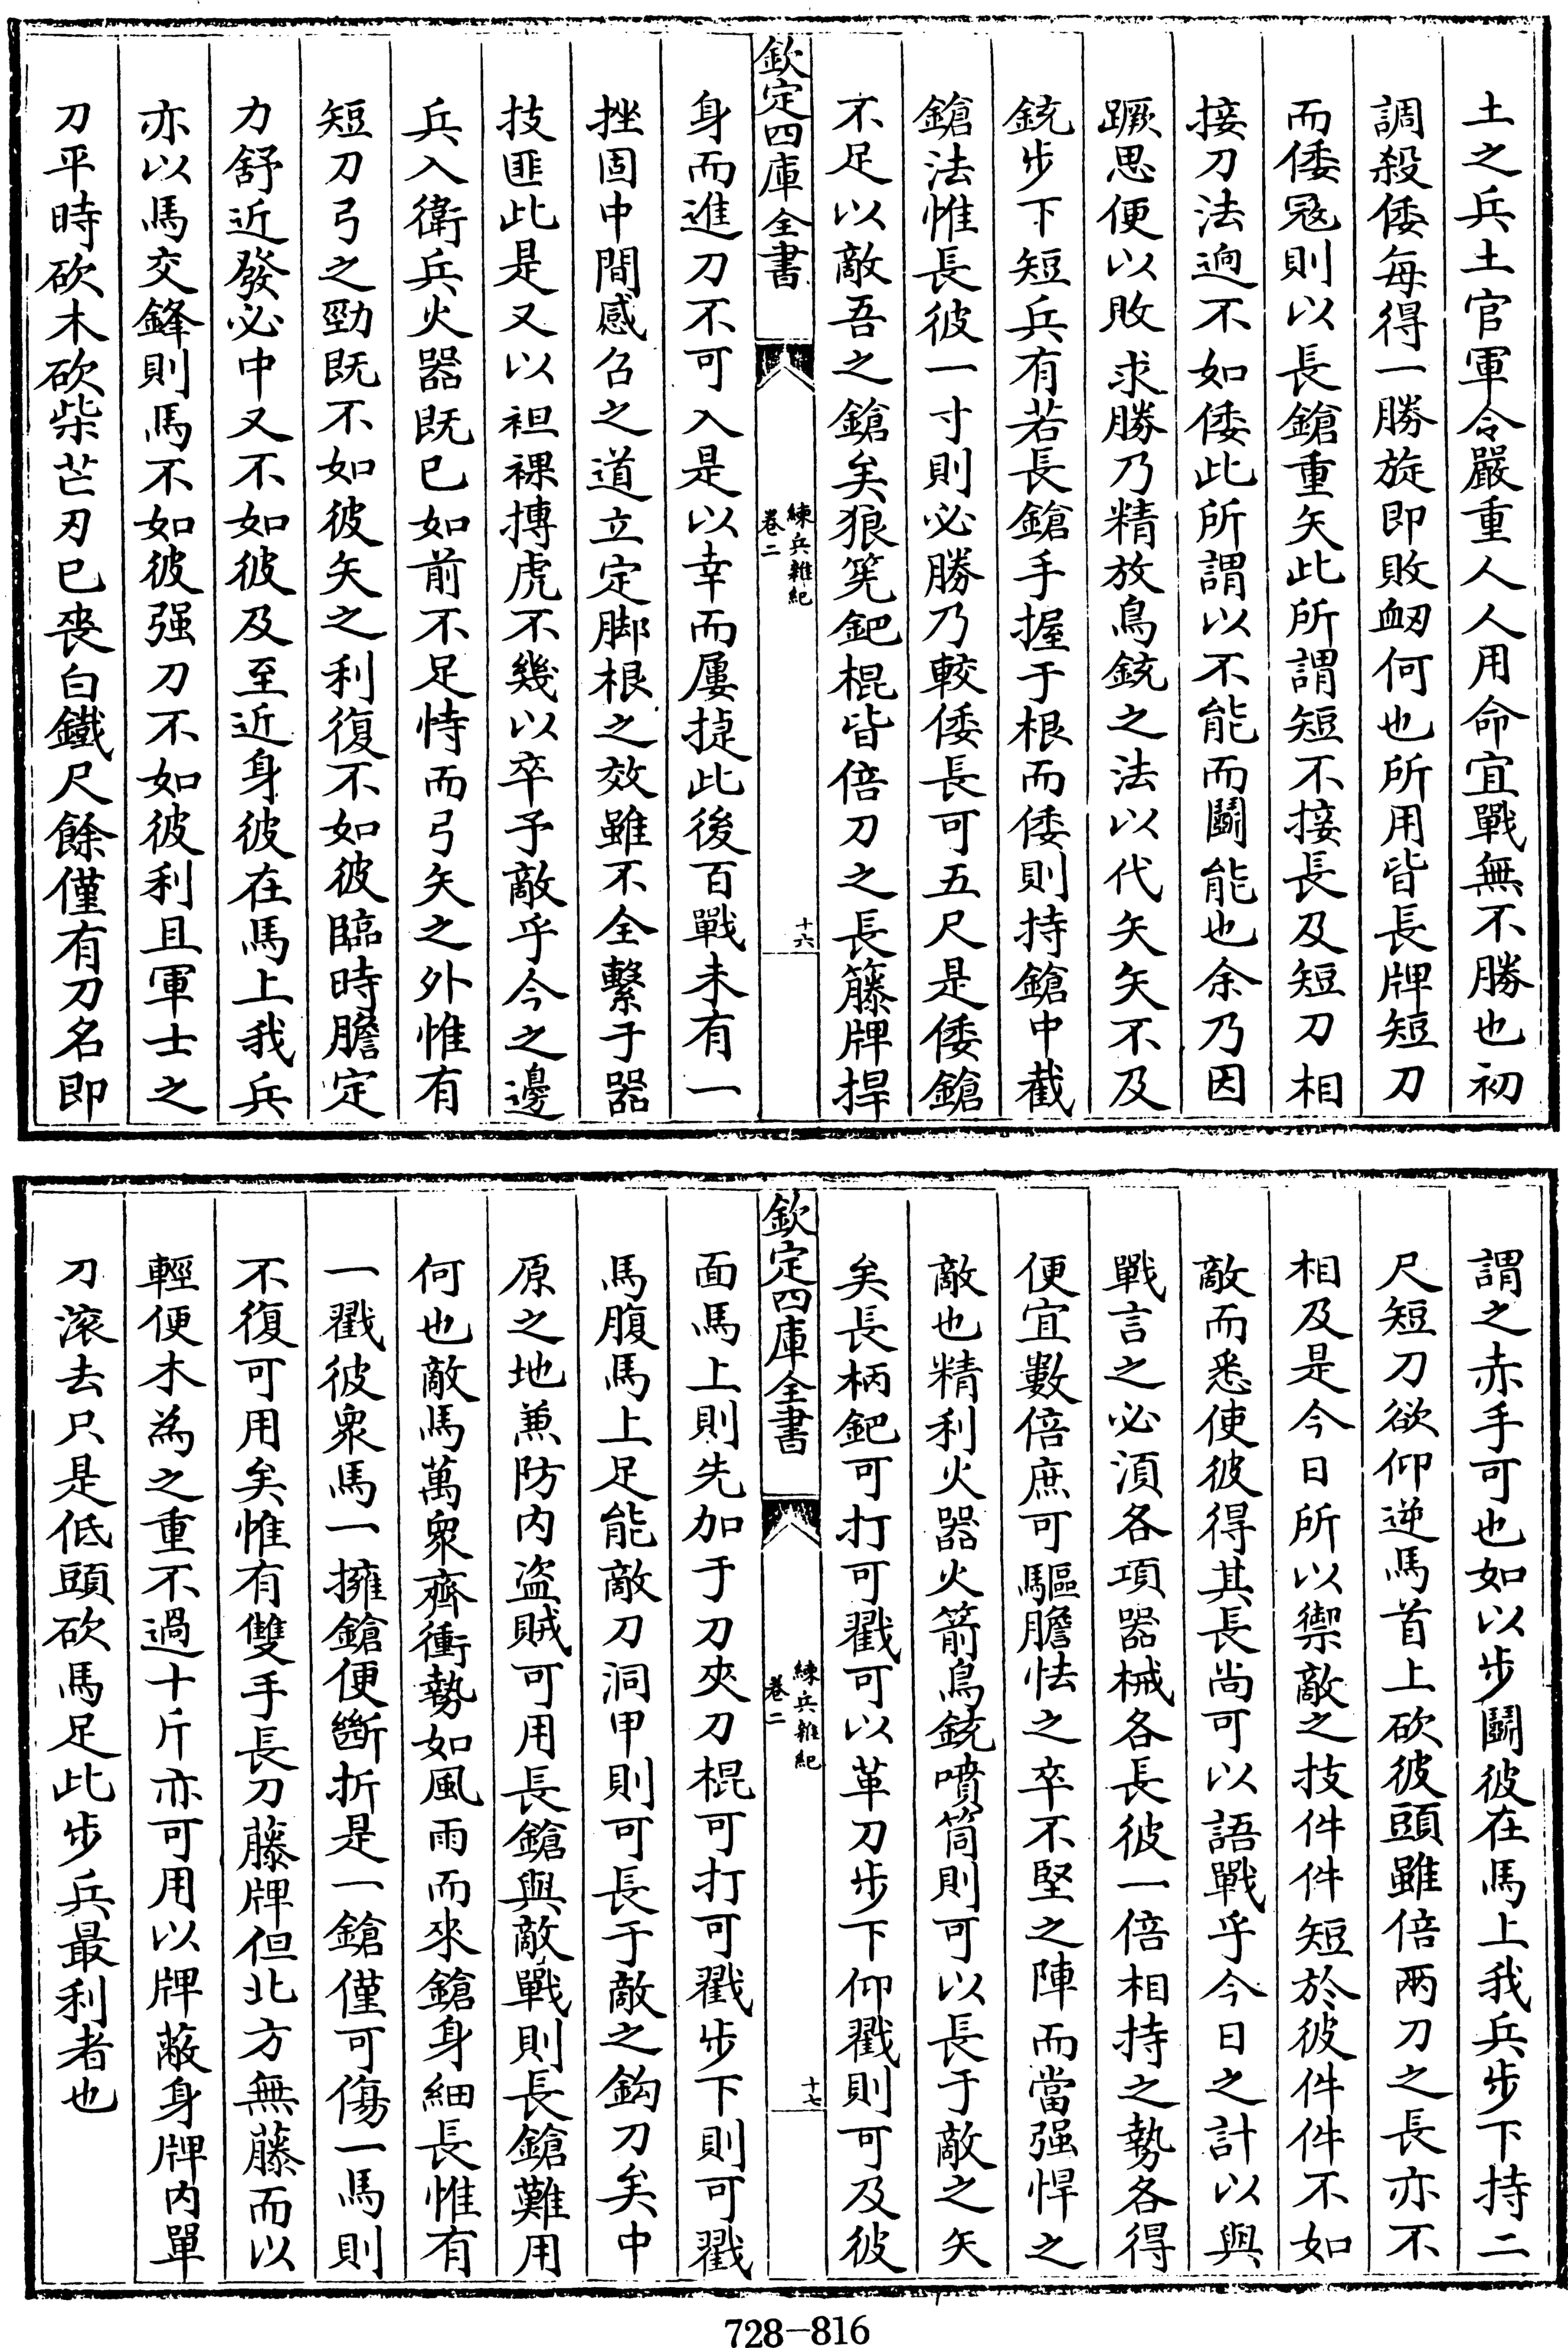 土之兵土官軍令嚴重人人用命宜戰無不勝也初
調殺倭每得一勝旋即敗衂何也所用皆長牌短刀
而倭冦則以長鎗重矢此所謂短不接長及短刀相
接刀法逈不如倭此所謂以不能而鬭能也余乃因
蹶思便以敗求勝乃精放鳥銃之法以代矢矢不及
銃步下短兵有若長鎗手握于根而倭則持鎗中截
鎗法惟長彼一寸則必勝乃較倭長可五尺是倭鎗
不足以敵吾之鎗矣狼筅鈀棍皆倍刀之長籐牌捍
欽定四庫全書
練兵雜紀
卷二
十六
身而進刀不可入是以幸而屢㨗此後百戰未有一
挫固中間感召之道立定脚根之效雖不全繫于器
技匪此是又以袒裸搏虎不幾以卒予敵乎今之邊
兵入衛兵火器既已如前不足恃而弓矢之外惟有
短刀弓之勁既不如彼矢之利復不如彼臨時膽定
力舒近發必中又不如彼及至近身彼在馬上我兵
亦以馬交鋒則馬不如彼强刀不如彼利且軍士之
刀平時砍木砍柴芒刃已喪白鐵尺餘僅有刀名即
謂之赤手可也如以步鬭彼在馬上我兵步下持二
尺短刀欲仰逆馬首上砍彼頭雖倍兩刀之長亦不
相及是今日所以禦敵之技件件短於彼件件不如
敵而悉使彼得其長尚可以語戰乎今日之計以與
戰言之必須各項器械各長彼一倍相持之勢各得
便宜數倍庶可驅膽怯之卒不堅之陣而當强悍之
敵也精利火器火箭鳥銃噴筒則可以長于敵之矢
矣長柄鈀可打可戳可以革刀步下仰戳則可及彼
欽定四庫全書
練兵雜紀
卷二
十七
面馬上則先加于刀夾刀棍可打可戳步下則可戳
馬腹馬上足能敵刀洞甲則可長于敵之鈎刀矣中
原之地兼防内盗賊可用長鎗與敵戰則長鎗難用
何也敵馬萬衆齊衝勢如風雨而來鎗身細長惟有
一戳彼衆馬一擁鎗便斷折是一鎗僅可傷一馬則
不復可用矣惟有雙手長刀藤牌但北方無藤而以
輕便木為之重不過十斤亦可用以牌蔽身牌内單
刀滚去只是低頭砍馬足此步兵最利者也
728-816